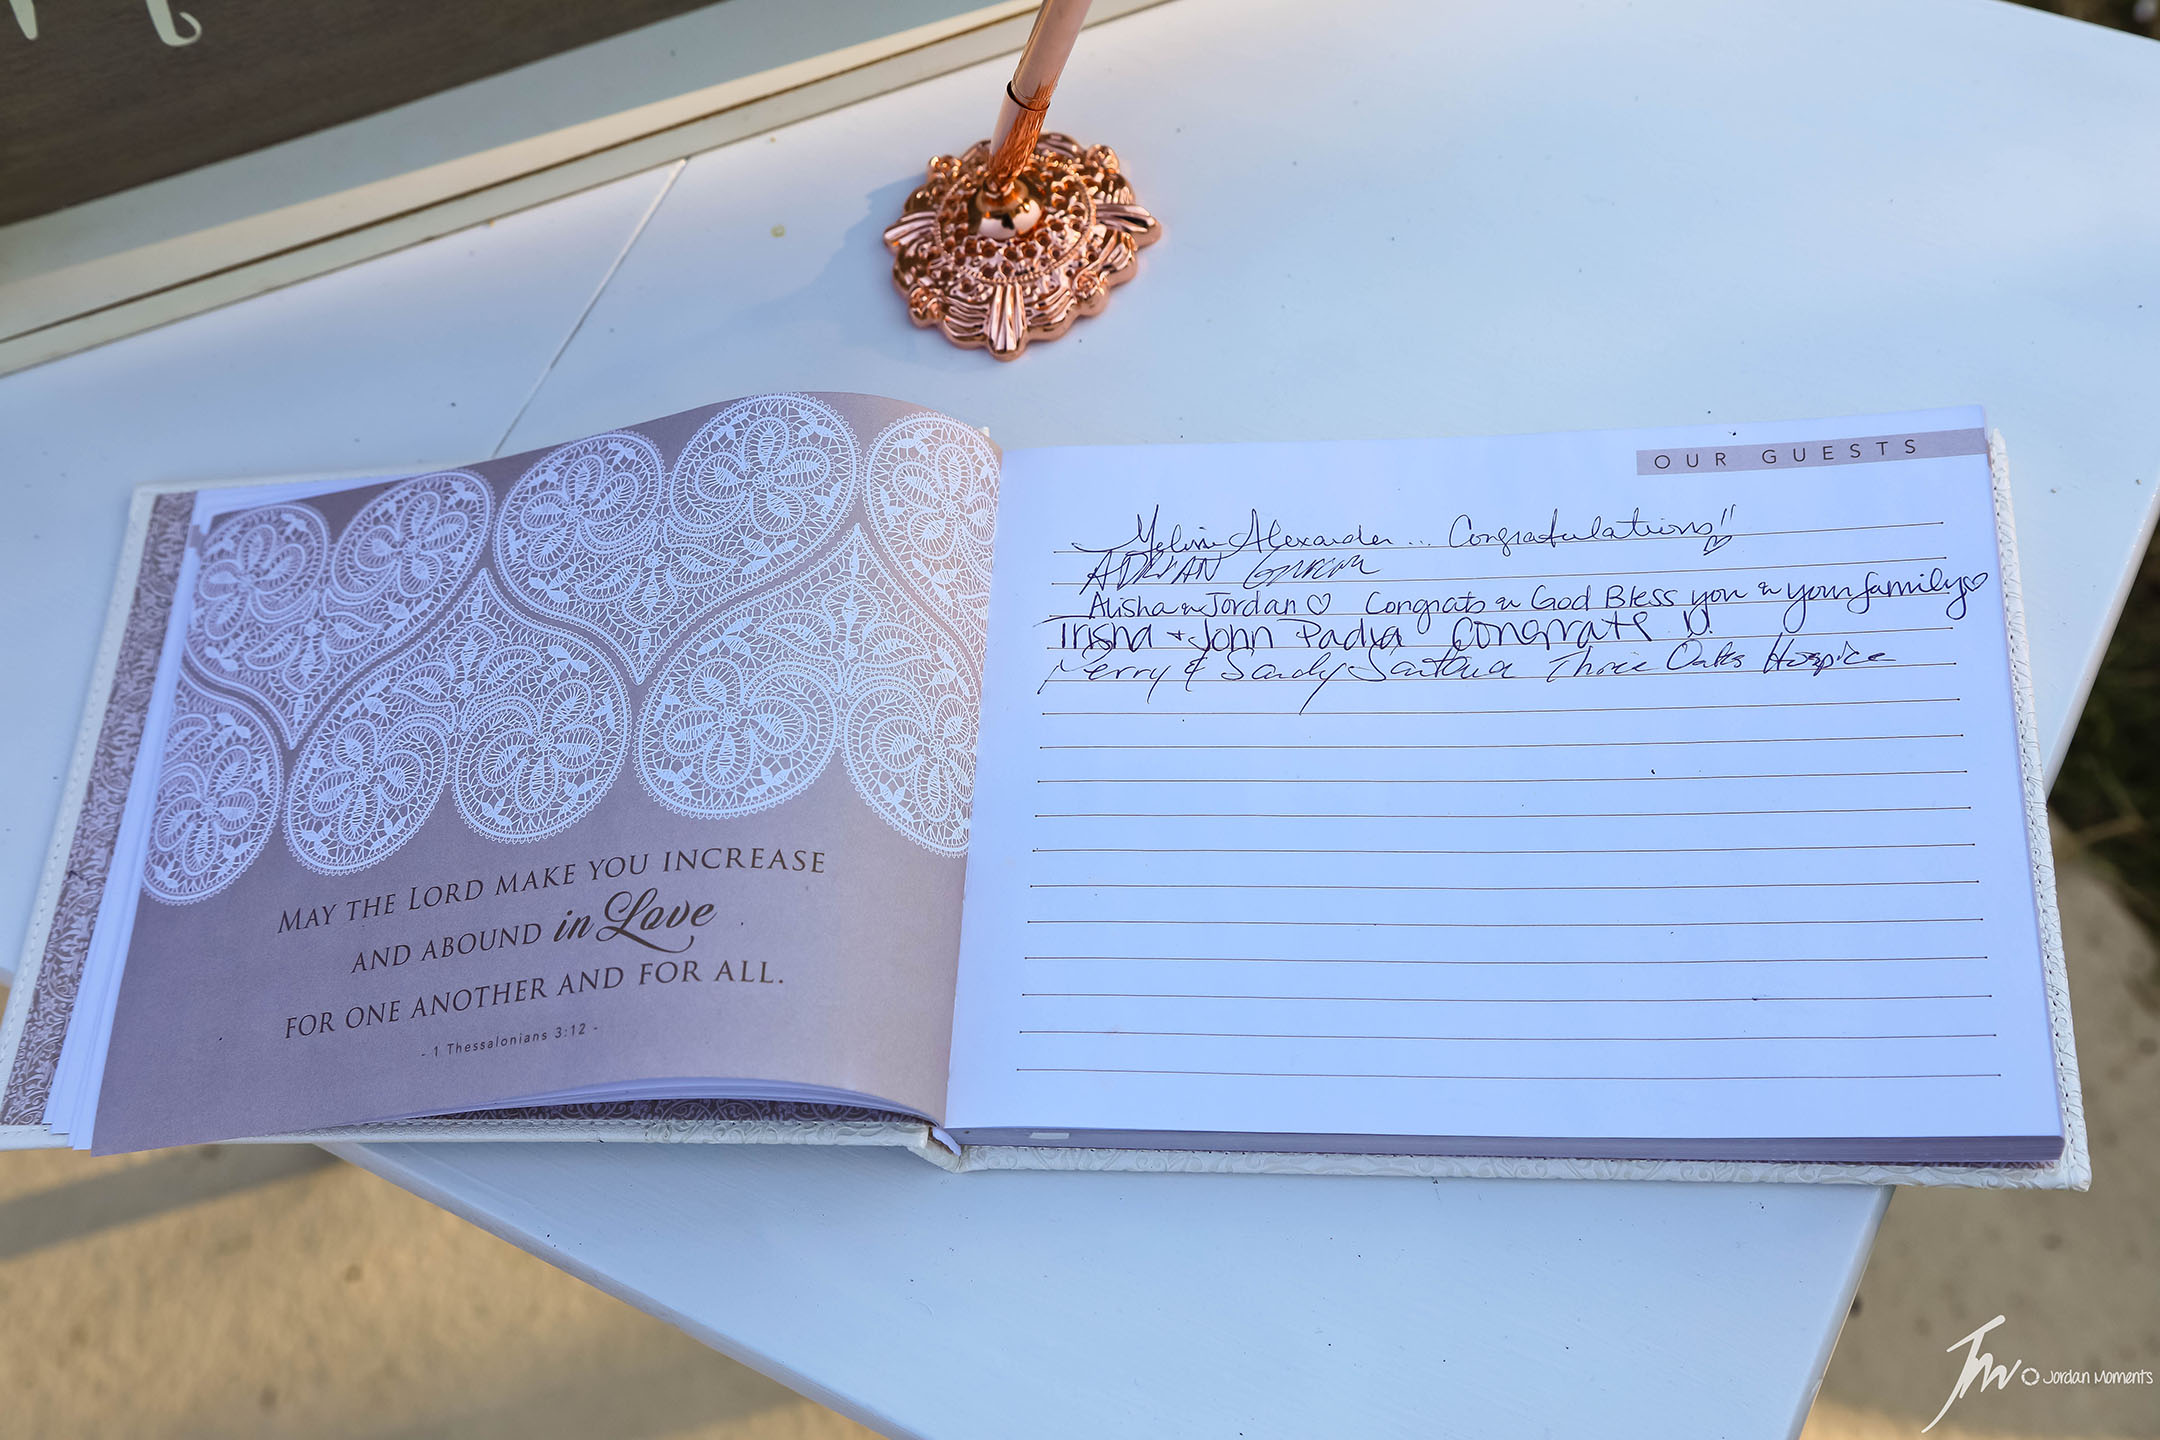 MAY THE LORD MAKE YOU INCREASE
AND ABOUND in Love
FOR ONE ANOTHER AND FOR ALL.
- 1 Thessalonians 3:12 -
OUR GUESTS
Alexander... Congratulations!!
ADRIAN
Alisha & Jordan ♡ Congrats & God Bless you & your family ♡
Trisha + John Padia Congrats
& Sandy Three Oaks Hospice
Jordan Moments